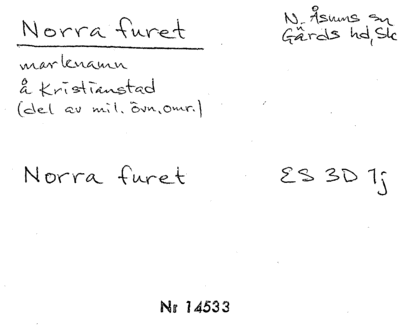 Norra furet
N. Åsums sn
Gärds hd, Sk
markenamn
å Kristianstad
(del av mil. övn. omr.)
Norra furet
ES 3D 1j
Nr 14533